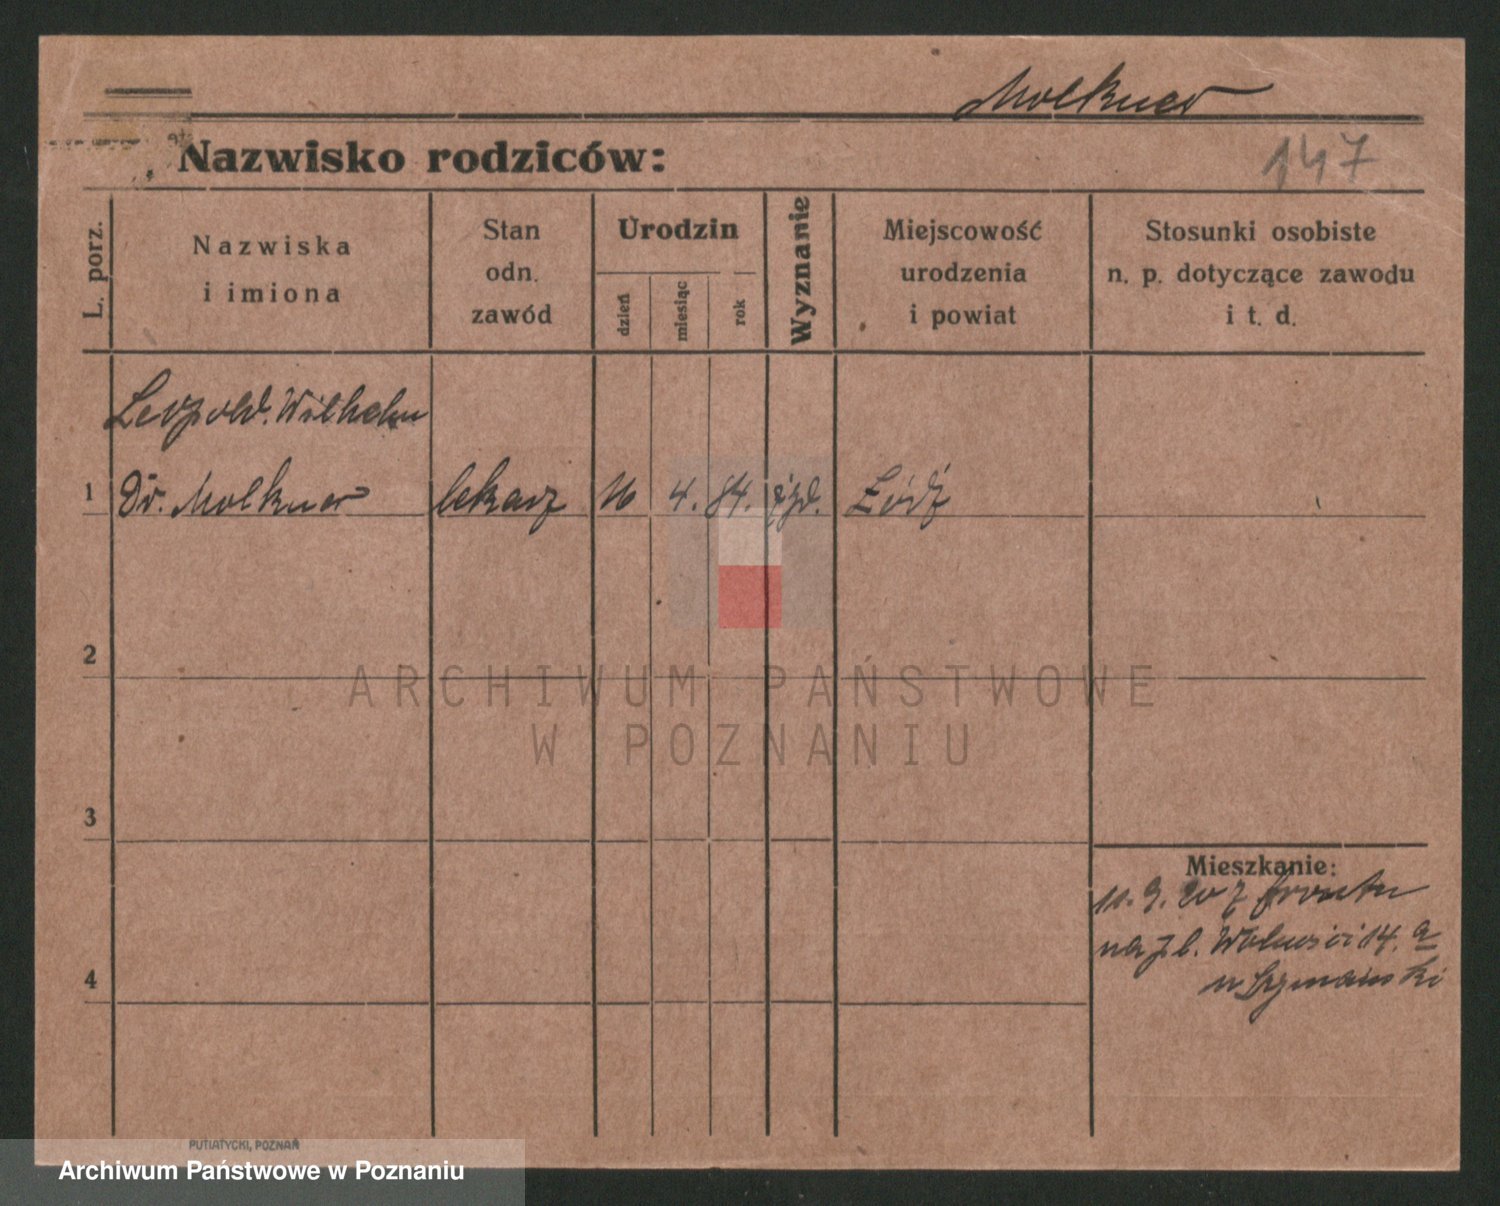 Molkner
147
Nazwisko rodziców:
L. porz.
Nazwiska
i imiona
Stan
odn.
zawód
Urodzin
dzień
miesiąc
rok
Wyznanie
Miejscowość
urodzenia
i powiat
Stosunki osobiste
n. p. dotyczące zawodu
i t. d.
Leopold. Wilhelm
1 Dr. Molkner lekarz 16 4. 84. żyd. Łódź
2
3
4
Mieszkanie:
11. 9. 20 z frontu
na pl. Wolności 14. a
u Szymański
ARCHIWUM PAŃSTWOWE
W POZNANIU
PUTIATYCKI, POZNAŃ
Archiwum Państwowe w Poznaniu